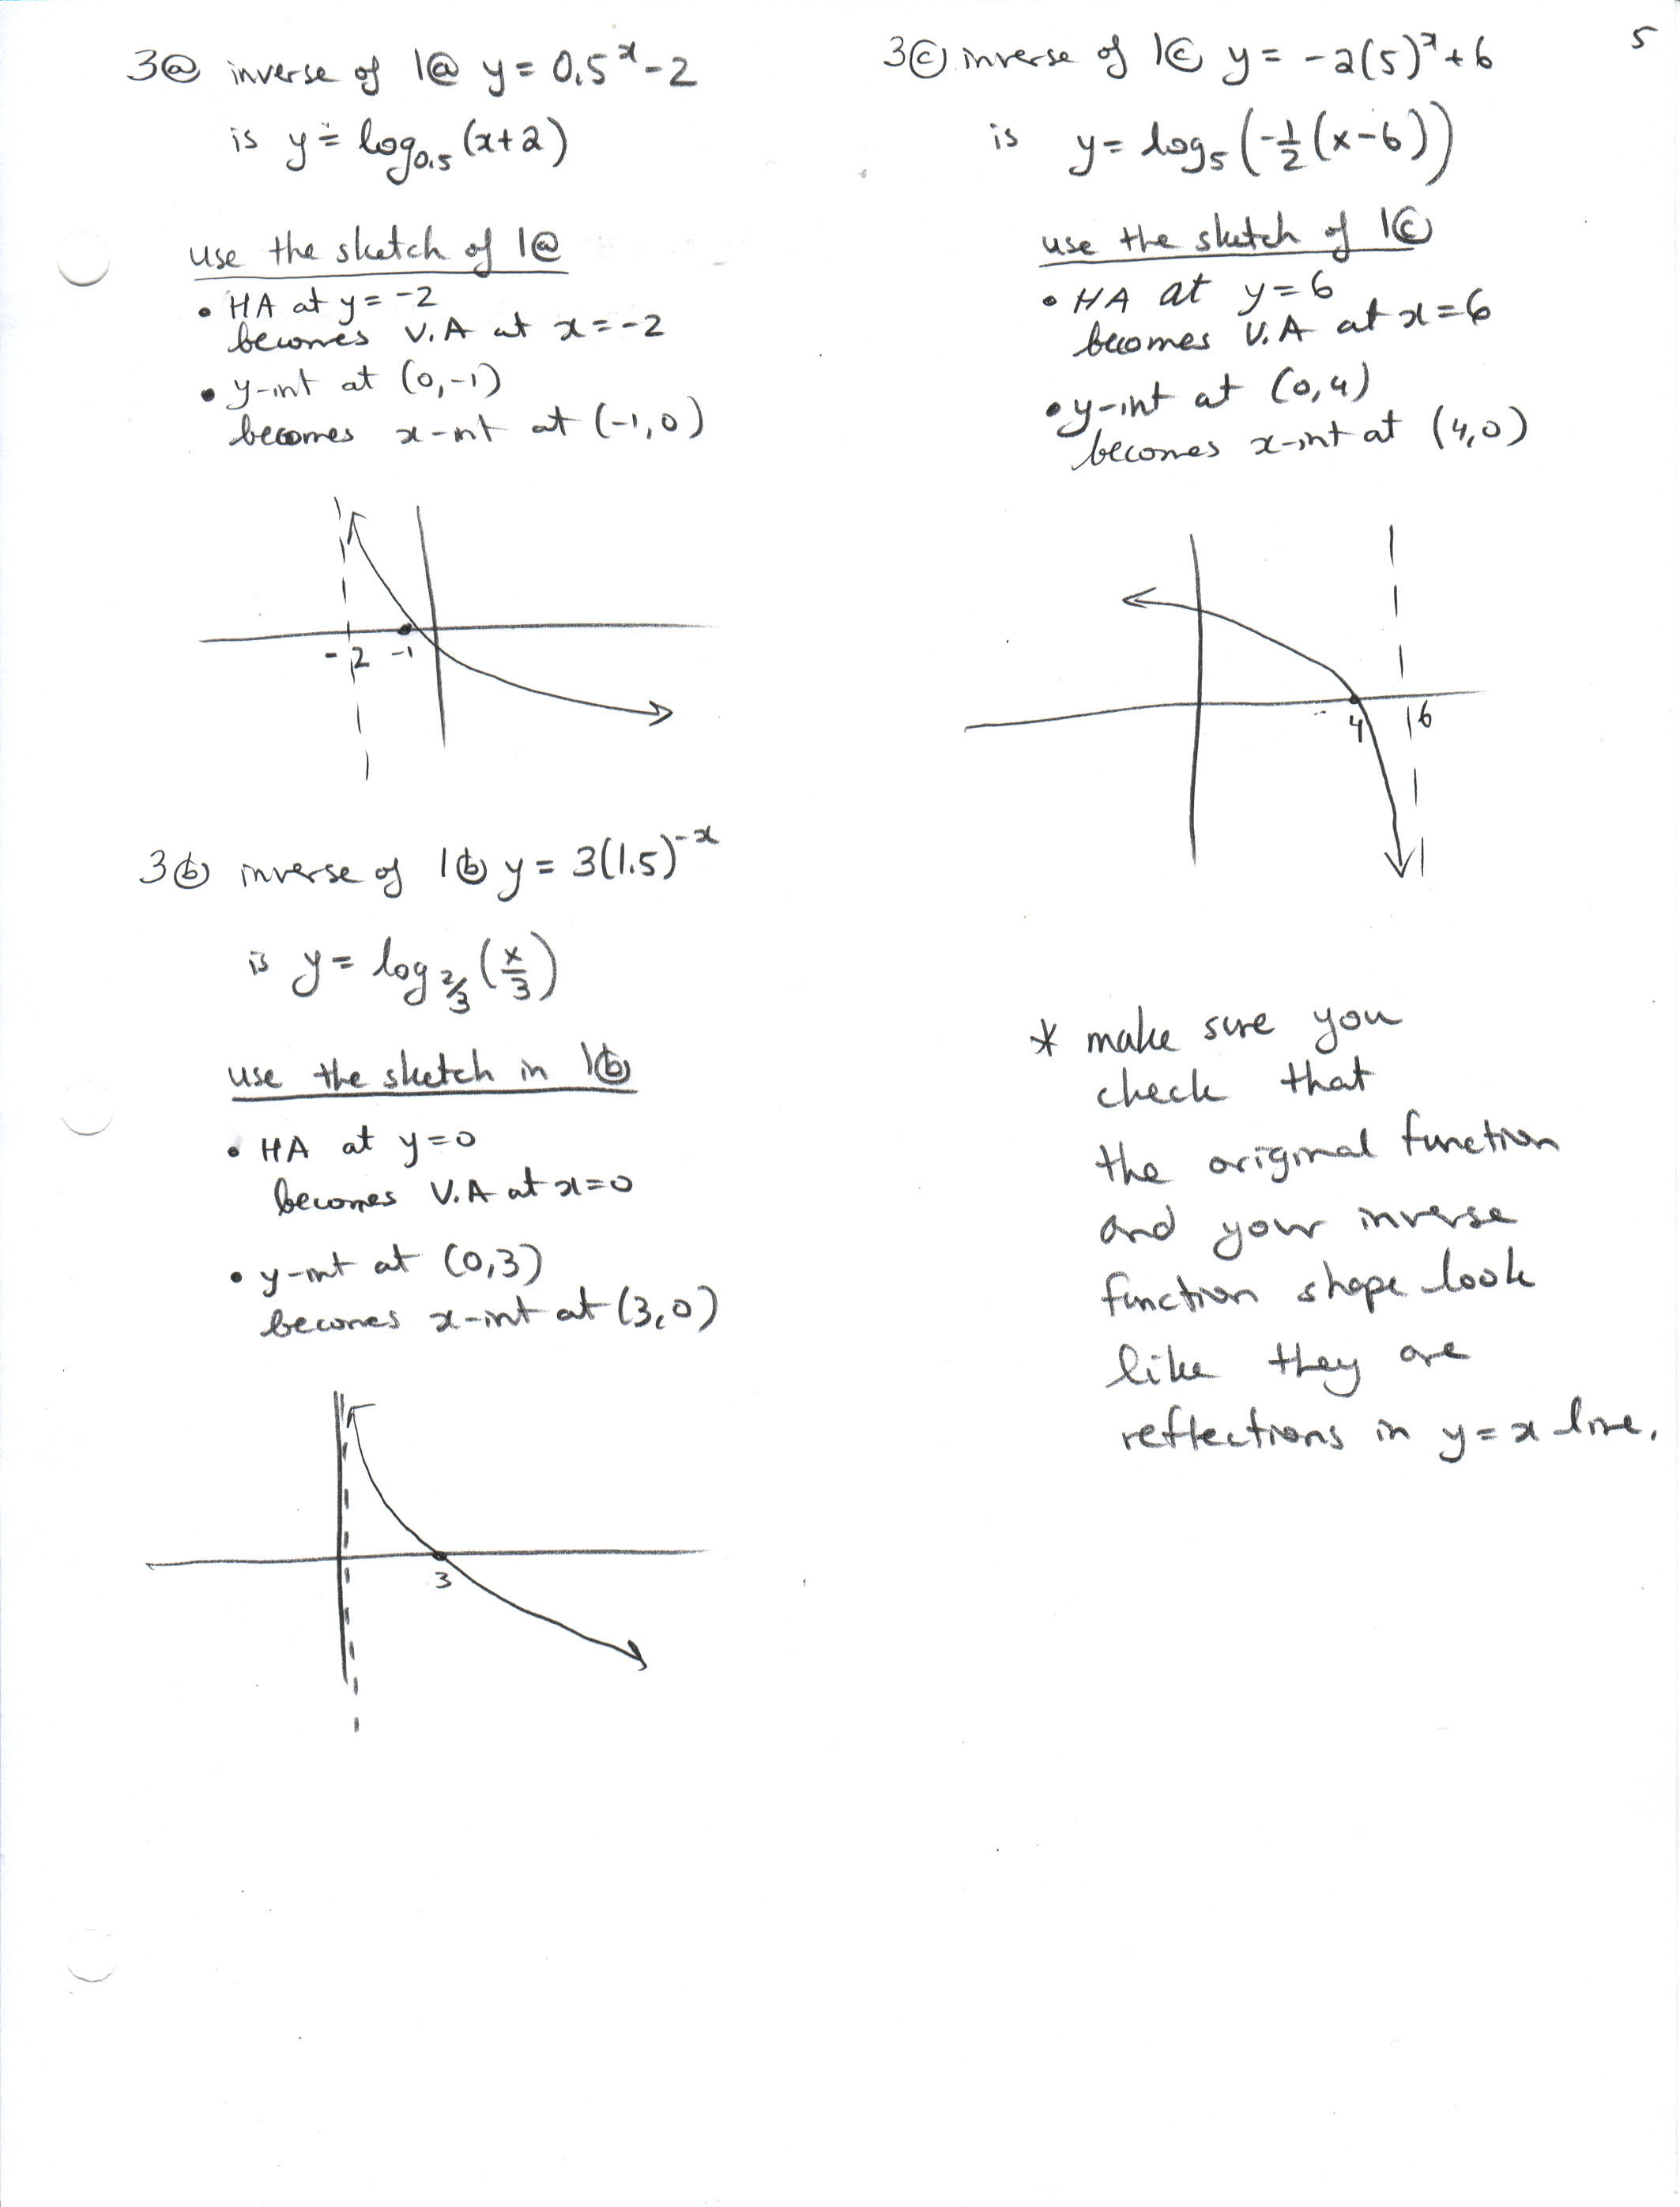 5
3ⓐ inverse of 1ⓐ y = 0.5^x - 2
is y = log_0.5 (x+2)
use the sketch of 1ⓐ
• HA at y = -2
becomes V.A at x = -2
• y-int at (0,-1)
becomes x-int at (-1,0)
-2 -1
3ⓑ inverse of 1ⓑ y = 3(1.5)^-x
is y = log_2/3 (x/3)
use the sketch in 1ⓑ
• HA at y=0
becomes V.A at x=0
• y-int at (0,3)
becomes x-int at (3,0)
3
3ⓒ inverse of 1ⓒ y = -2(5)^x + 6
is y = log_5 (-1/2 (x-6))
use the sketch of 1ⓒ
• HA at y=6
becomes V.A at x=6
• y-int at (0,4)
becomes x-int at (4,0)
4 6
* make sure you
check that
the original function
and your inverse
function shape look
like they are
reflections in y=x line.